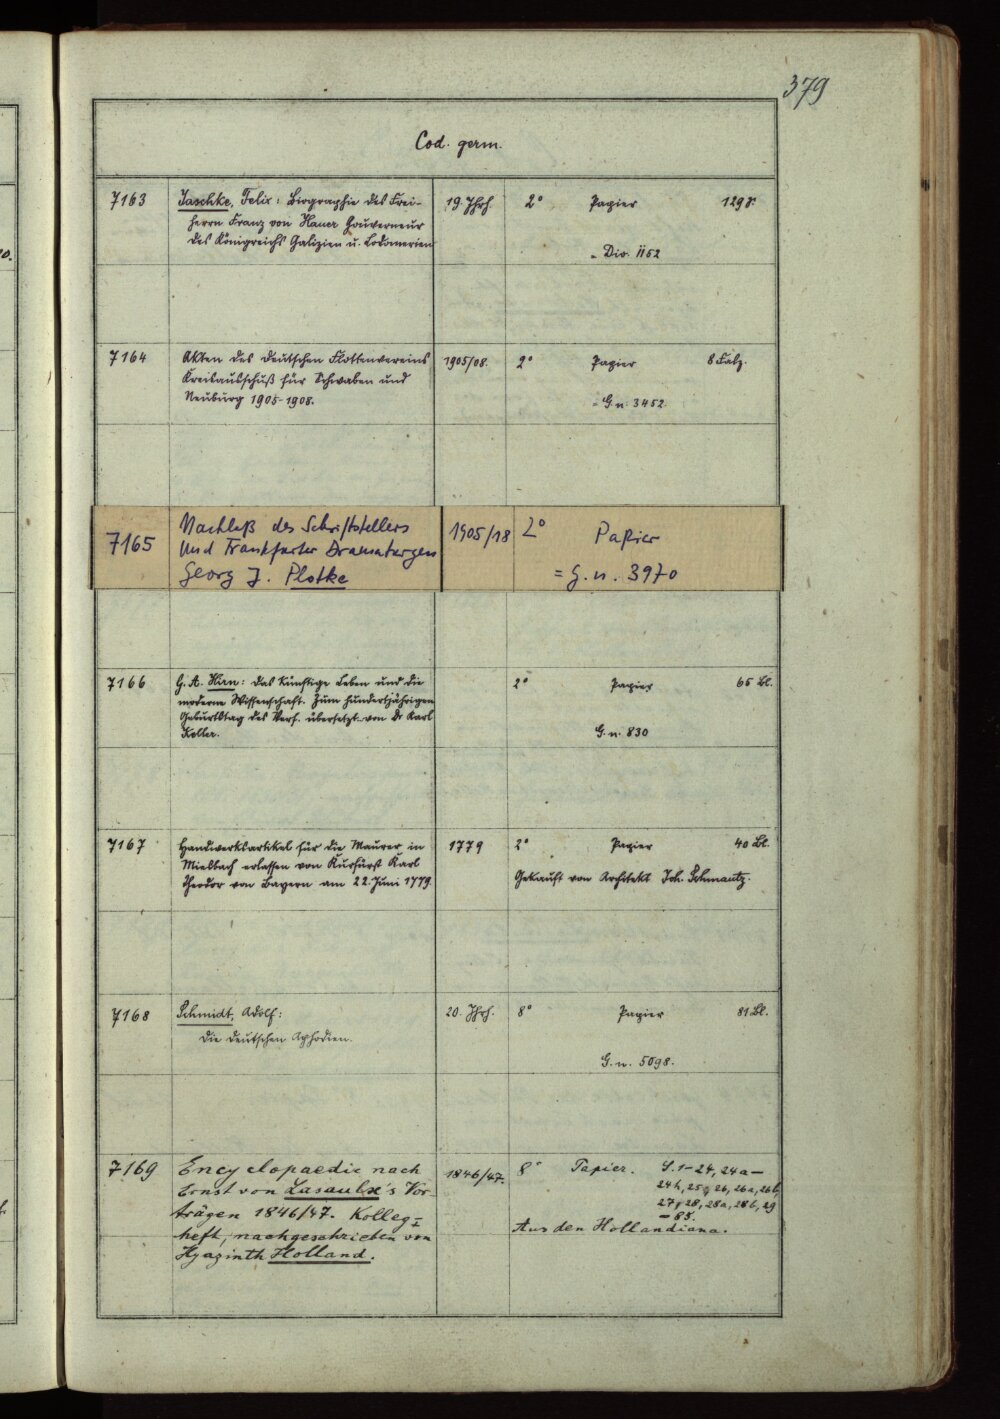 379
Cod. germ.
7163 Jaschke, Felix: Biographie des Frei- 19. Jhrh. 2° Papier 129 S.
herrn Franz von Hauer Gouverneur
des Königreichs Galizien u. Lodomerien
= Div. II 52
7164 Akten des Deutschen Flottenvereins 1905/08. 2° Papier 8 Falz.
Kreisausschuß für Schwaben und
Neuburg 1905-1908. = G. n. 3452.
7165 Nachlaß des Schriftstellers 1905/18 2° Papier
und Frankfurter Dramaturgen
Georg J. Plotke = G. n. 3970
7166 G. A. : Das künftige Leben und die 2° Papier 65 Bl.
moderne Wissenschaft. Zum hundertjährigen
Geburtstag des Verf. übersetzt von Dr Karl
Keller. G. n. 830
7167 Handwerksartikel für die Maurer in 1779 2° Papier 40 Bl.
Miesbach erlassen von Kurfürst Karl
Theodor von Bayern am 22. Juni 1779. Gekauft von Architekt Joh. Schmautz.
7168 Schmidt, Adolf: 20. Jhrh. 8° Papier 81 Bl.
Die deutschen
G. n. 5098.
7169 Encyclopaedie nach 1846/47. 8° Papier. S. 1-24, 24a-
Ernst von Lasaulx's Vor- 24h, 25, 26, 26a, 26b,
trägen 1846/47. Kolleg- 27, 28, 28a, 28b, 29
- 88.
heft, nachgeschrieben von Aus den Hollandiana.
Hyazinth Holland.